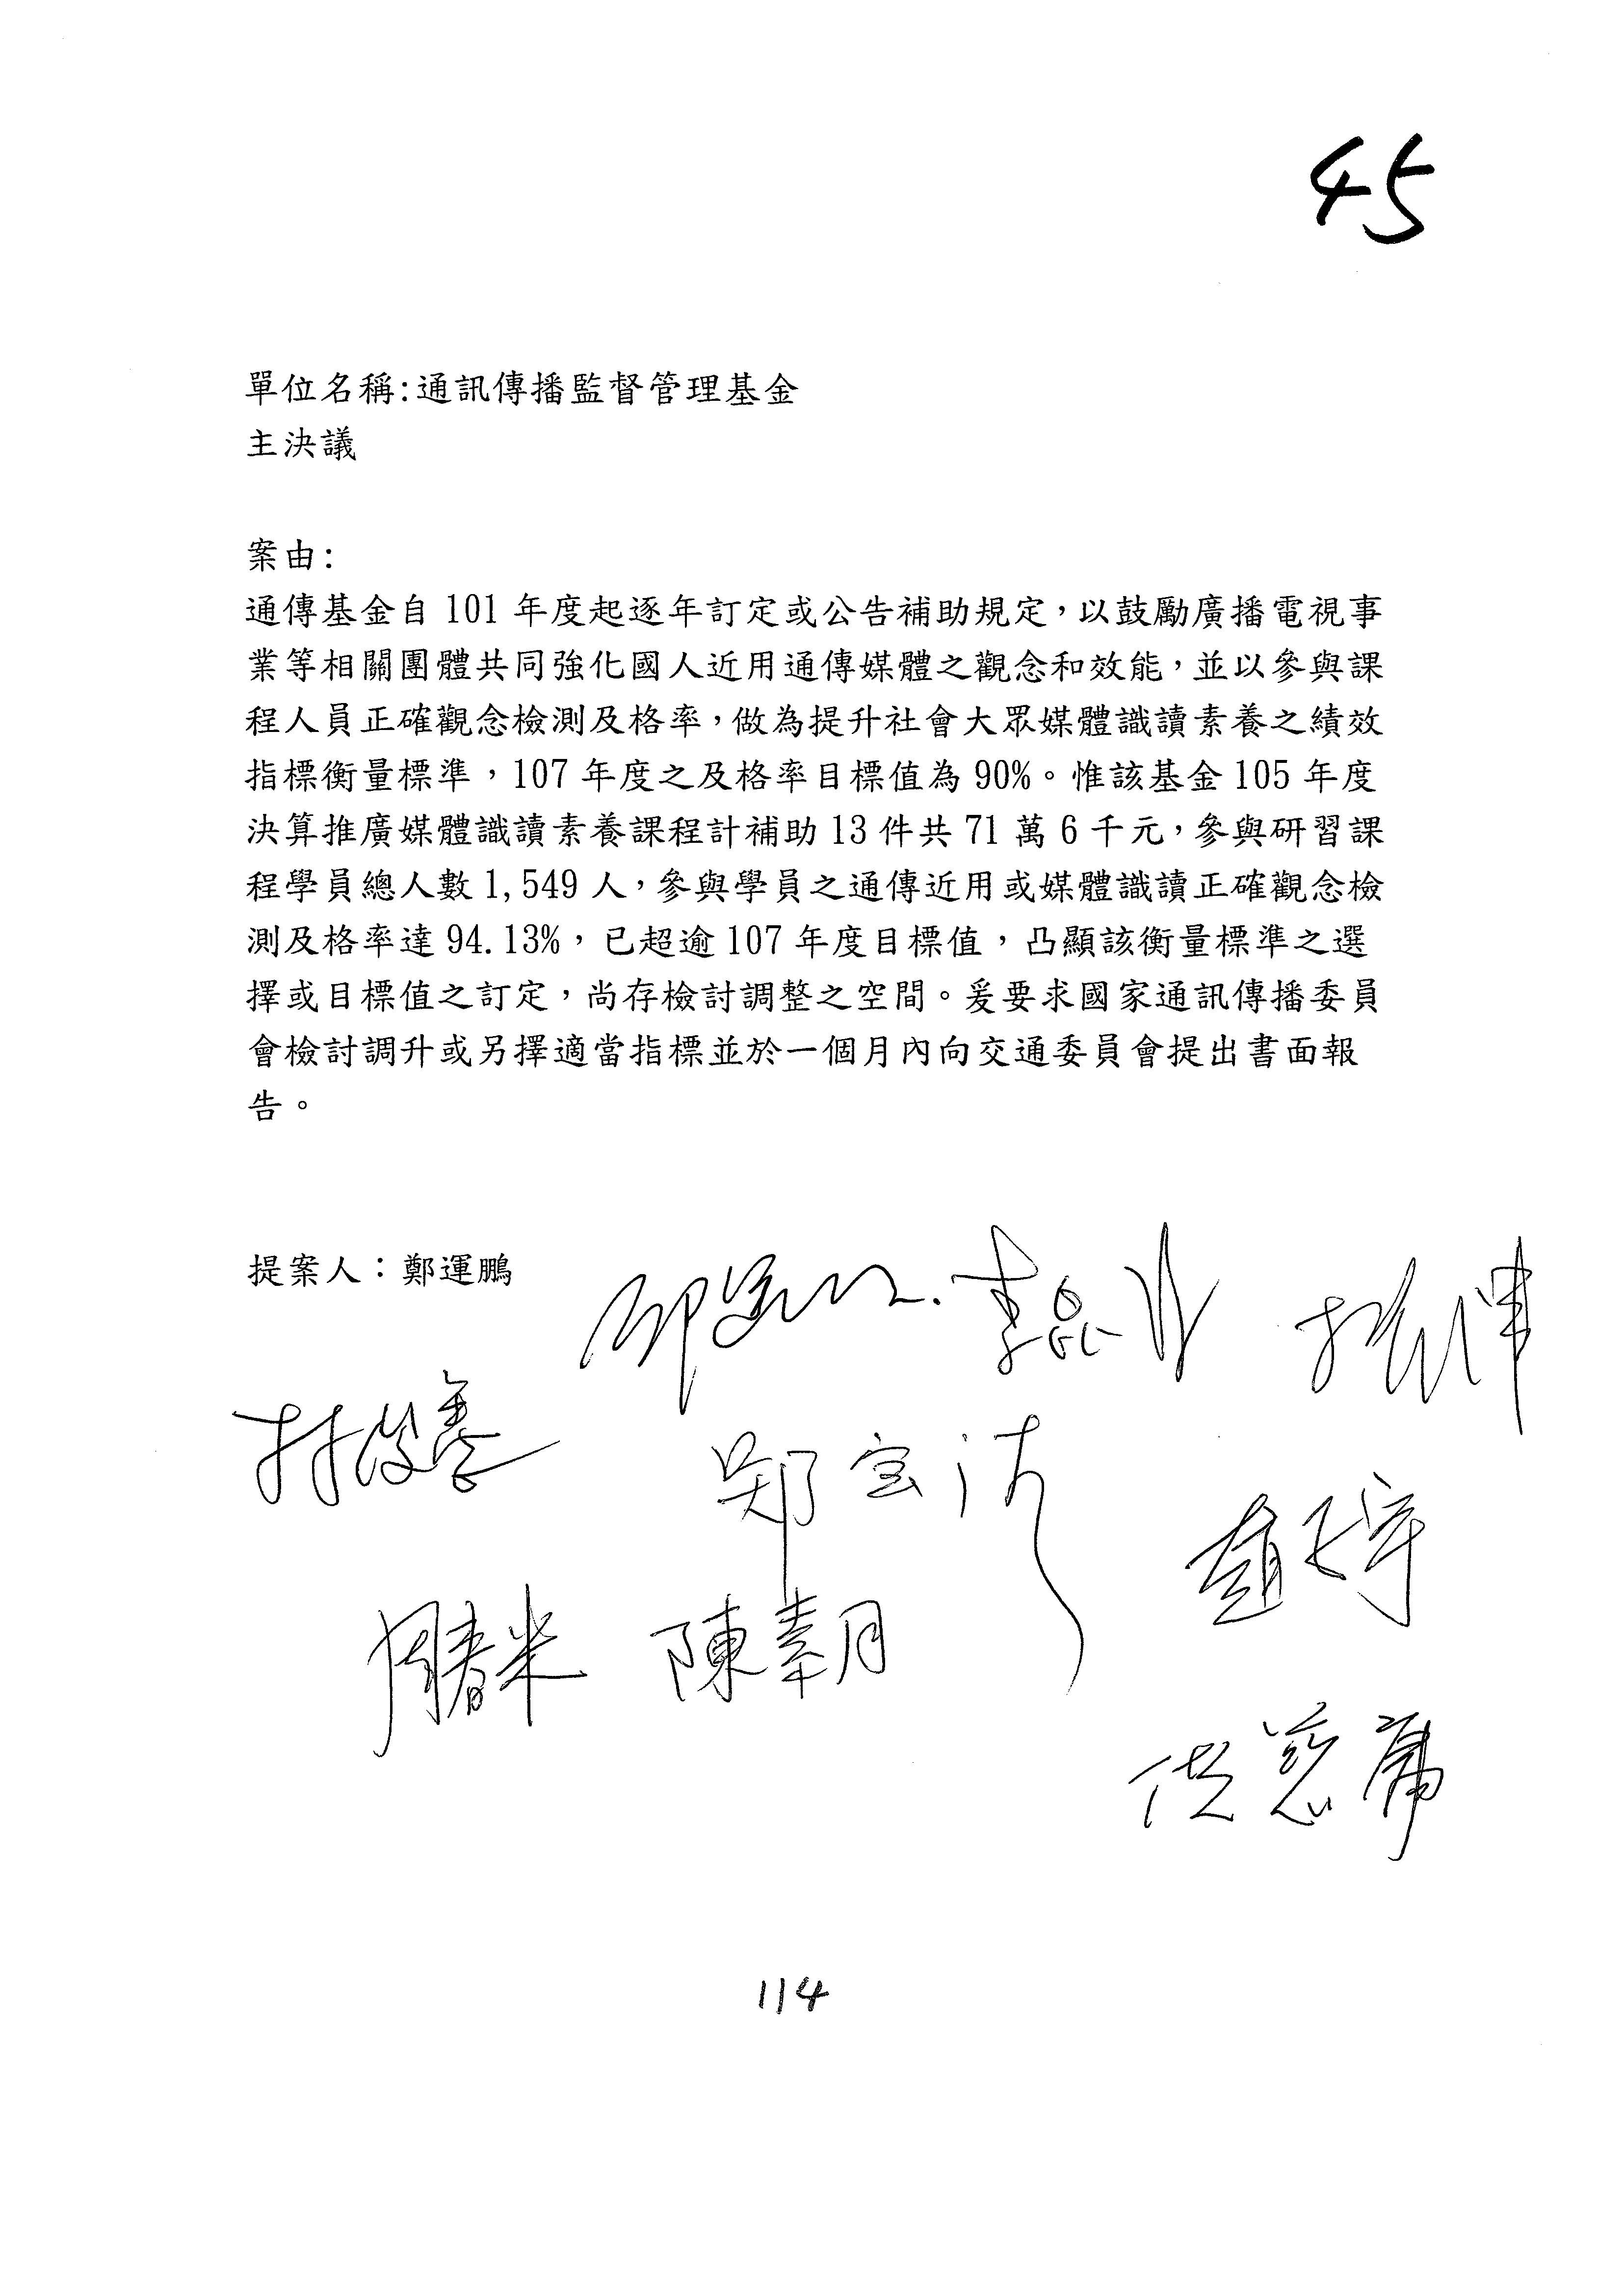 45
單位名稱:通訊傳播監督管理基金
主決議
案由:
通傳基金自 101 年度起逐年訂定或公告補助規定，以鼓勵廣播電視事
業等相關團體共同強化國人近用通傳媒體之觀念和效能，並以參與課
程人員正確觀念檢測及格率，做為提升社會大眾媒體識讀素養之績效
指標衡量標準，107 年度之及格率目標值為 90%。惟該基金 105 年度
決算推廣媒體識讀素養課程計補助 13 件共 71 萬 6 千元，參與研習課
程學員總人數 1,549 人，參與學員之通傳近用或媒體識讀正確觀念檢
測及格率達 94.13%，已超逾 107 年度目標值，凸顯該衡量標準之選
擇或目標值之訂定，尚存檢討調整之空間。爰要求國家通訊傳播委員
會檢討調升或另擇適當指標並於一個月內向交通委員會提出書面報
告。
提案人：鄭運鵬
李昆澤
林俊憲
鄭寶清
趙天麟
周春米 陳素月
洪慈庸
114